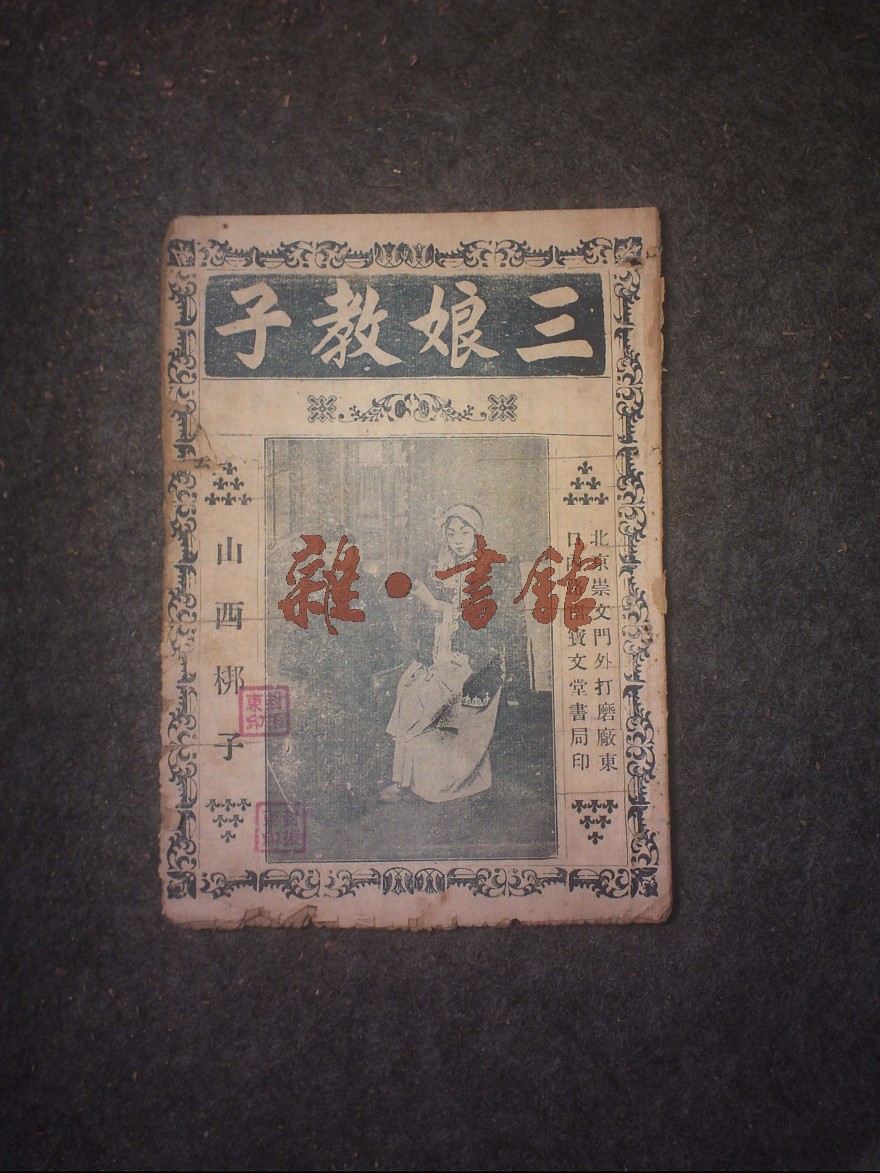 三娘教子
北京崇文門外打磨廠東
口 寶文堂書局印
山西梆子
雜·書館